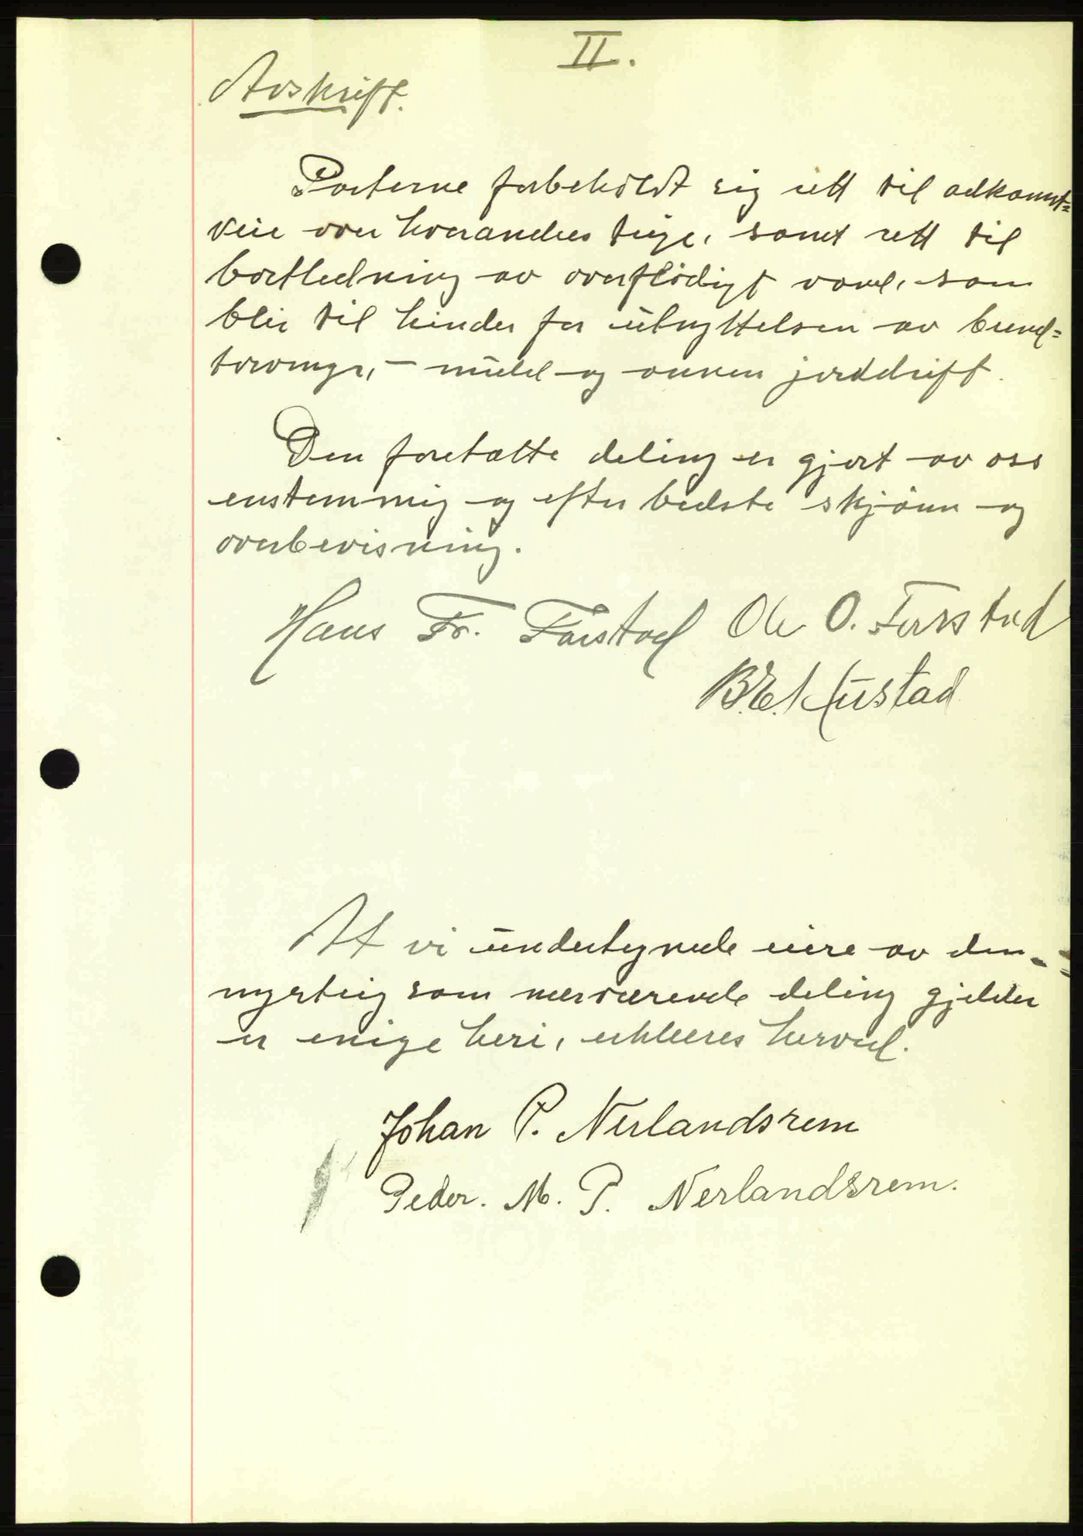 II.
Avskrift.
Parterne forbeholdt sig rett til adkomst=
veie over hverandres teige, samt rett til
bortledning av overflödigt vand, som
blir til hinder for utnyttelsen av brend=
torvmyr, – muld og annen jorddrift.
Den foretatte deling er gjort av oss
enstemmig og efter bedste skjönn og
overbevisning.
Hans Fr. Farstad Ole O. Farstad
B.E. Hustad
At vi undertegnede eiere av den
myrteig som nærværende deling gjelder
er enige heri, erkleres herved.
Johan P. Nerlandsrem
Peder. M. P. Nerlandsrem.